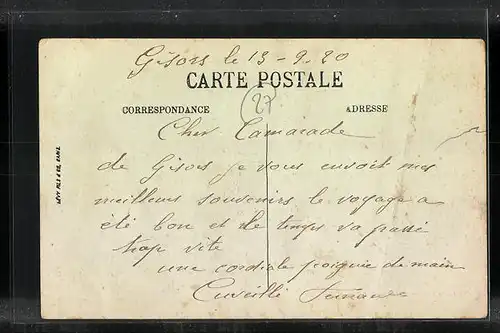 Gisors le 13-9.20
CARTE POSTALE
27
CORRESPONDANCE ADRESSE
Cher Camarade
de Gisors je vous envoit mes
meilleurs souvenirs le voyage a
été bon et le temps va passé
trop vite
une cordiale poignie de main
Cuveillé
LÉVY FILS & CIE, PARIS